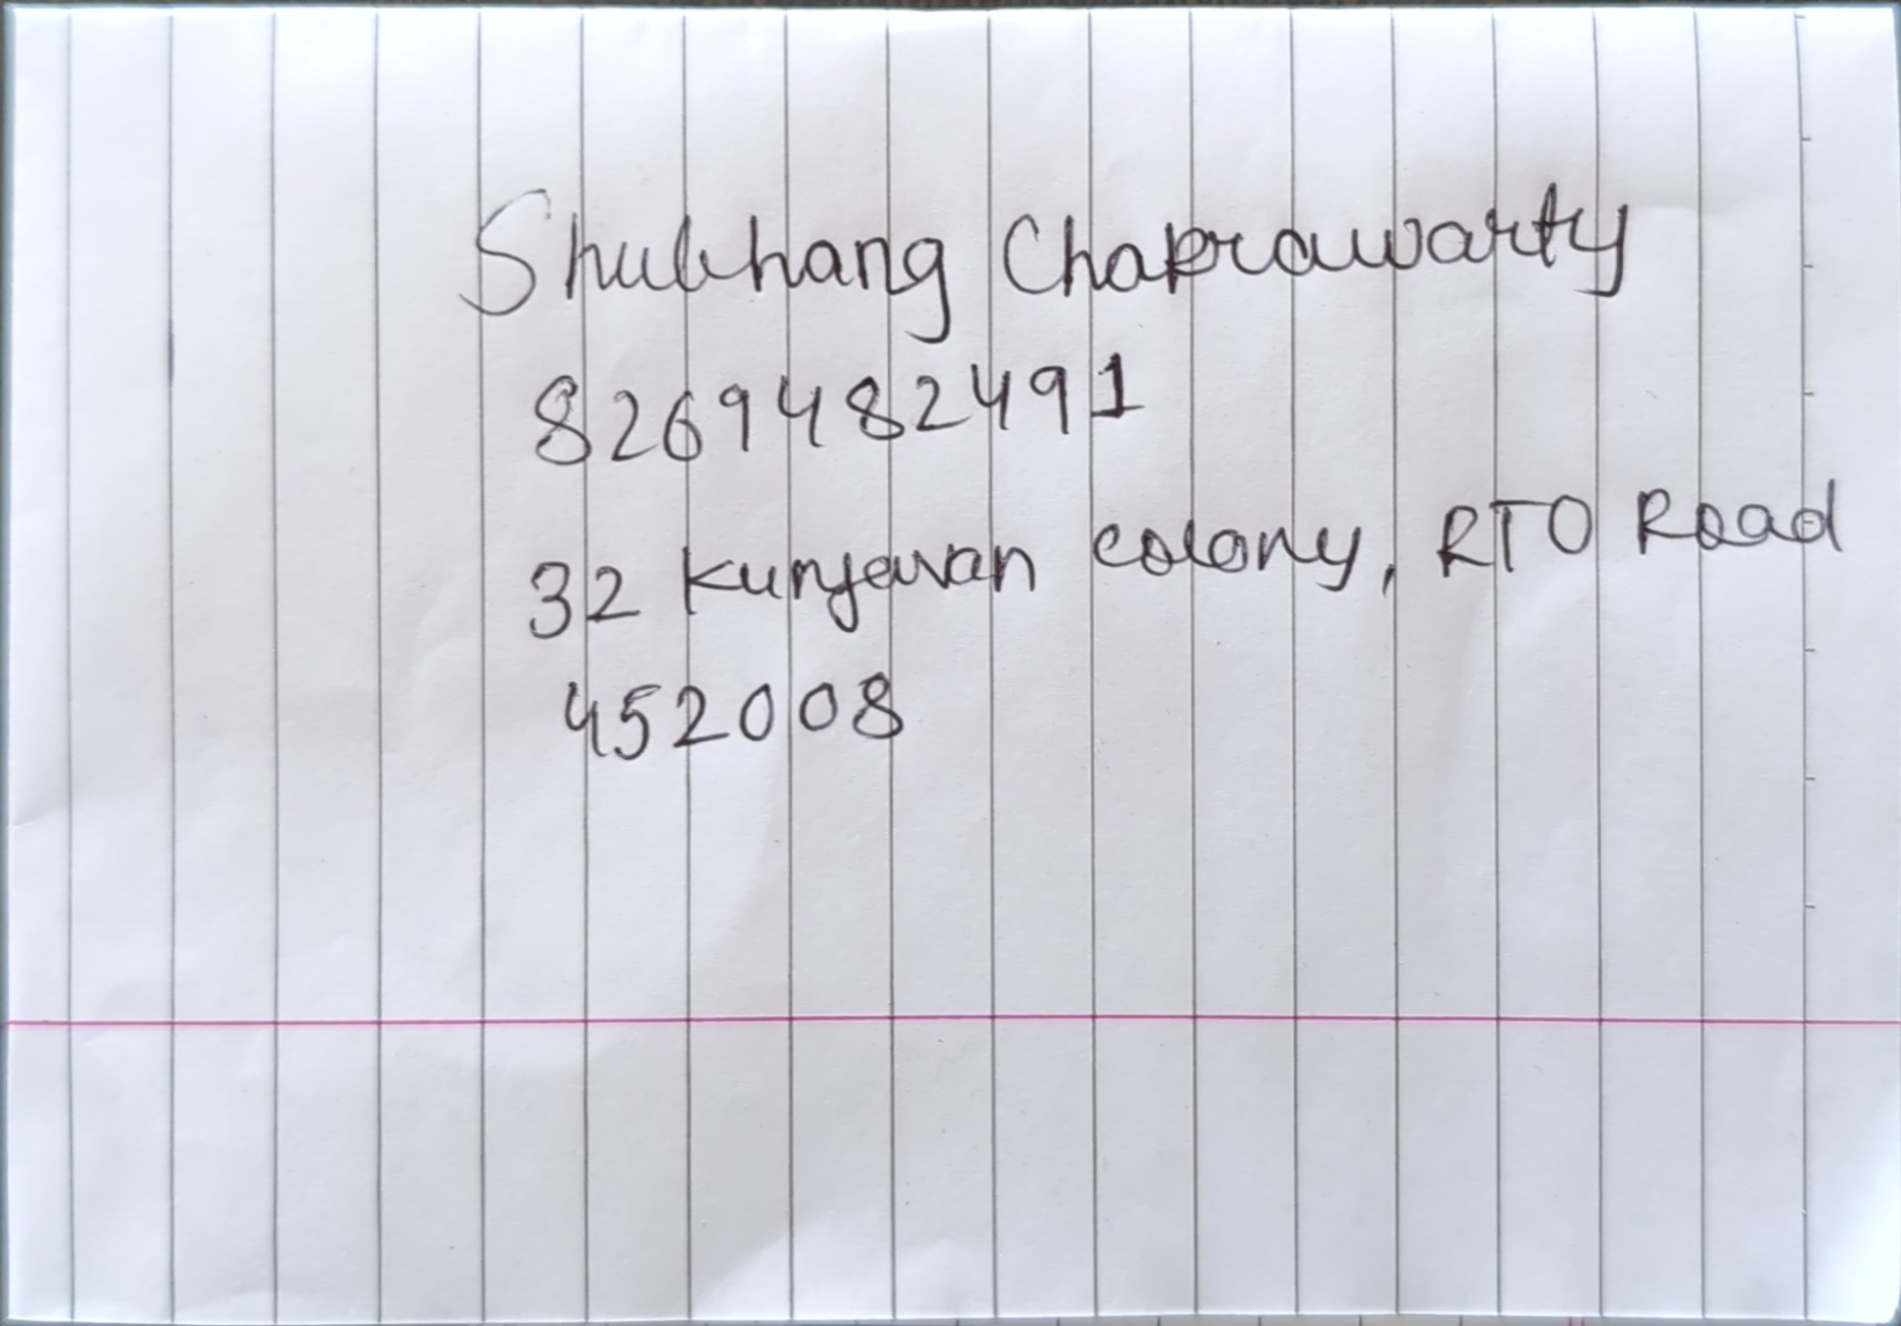 Shubhang Chakrawarty
8269482491
32 Kunjavan colony, RTO Road
452008